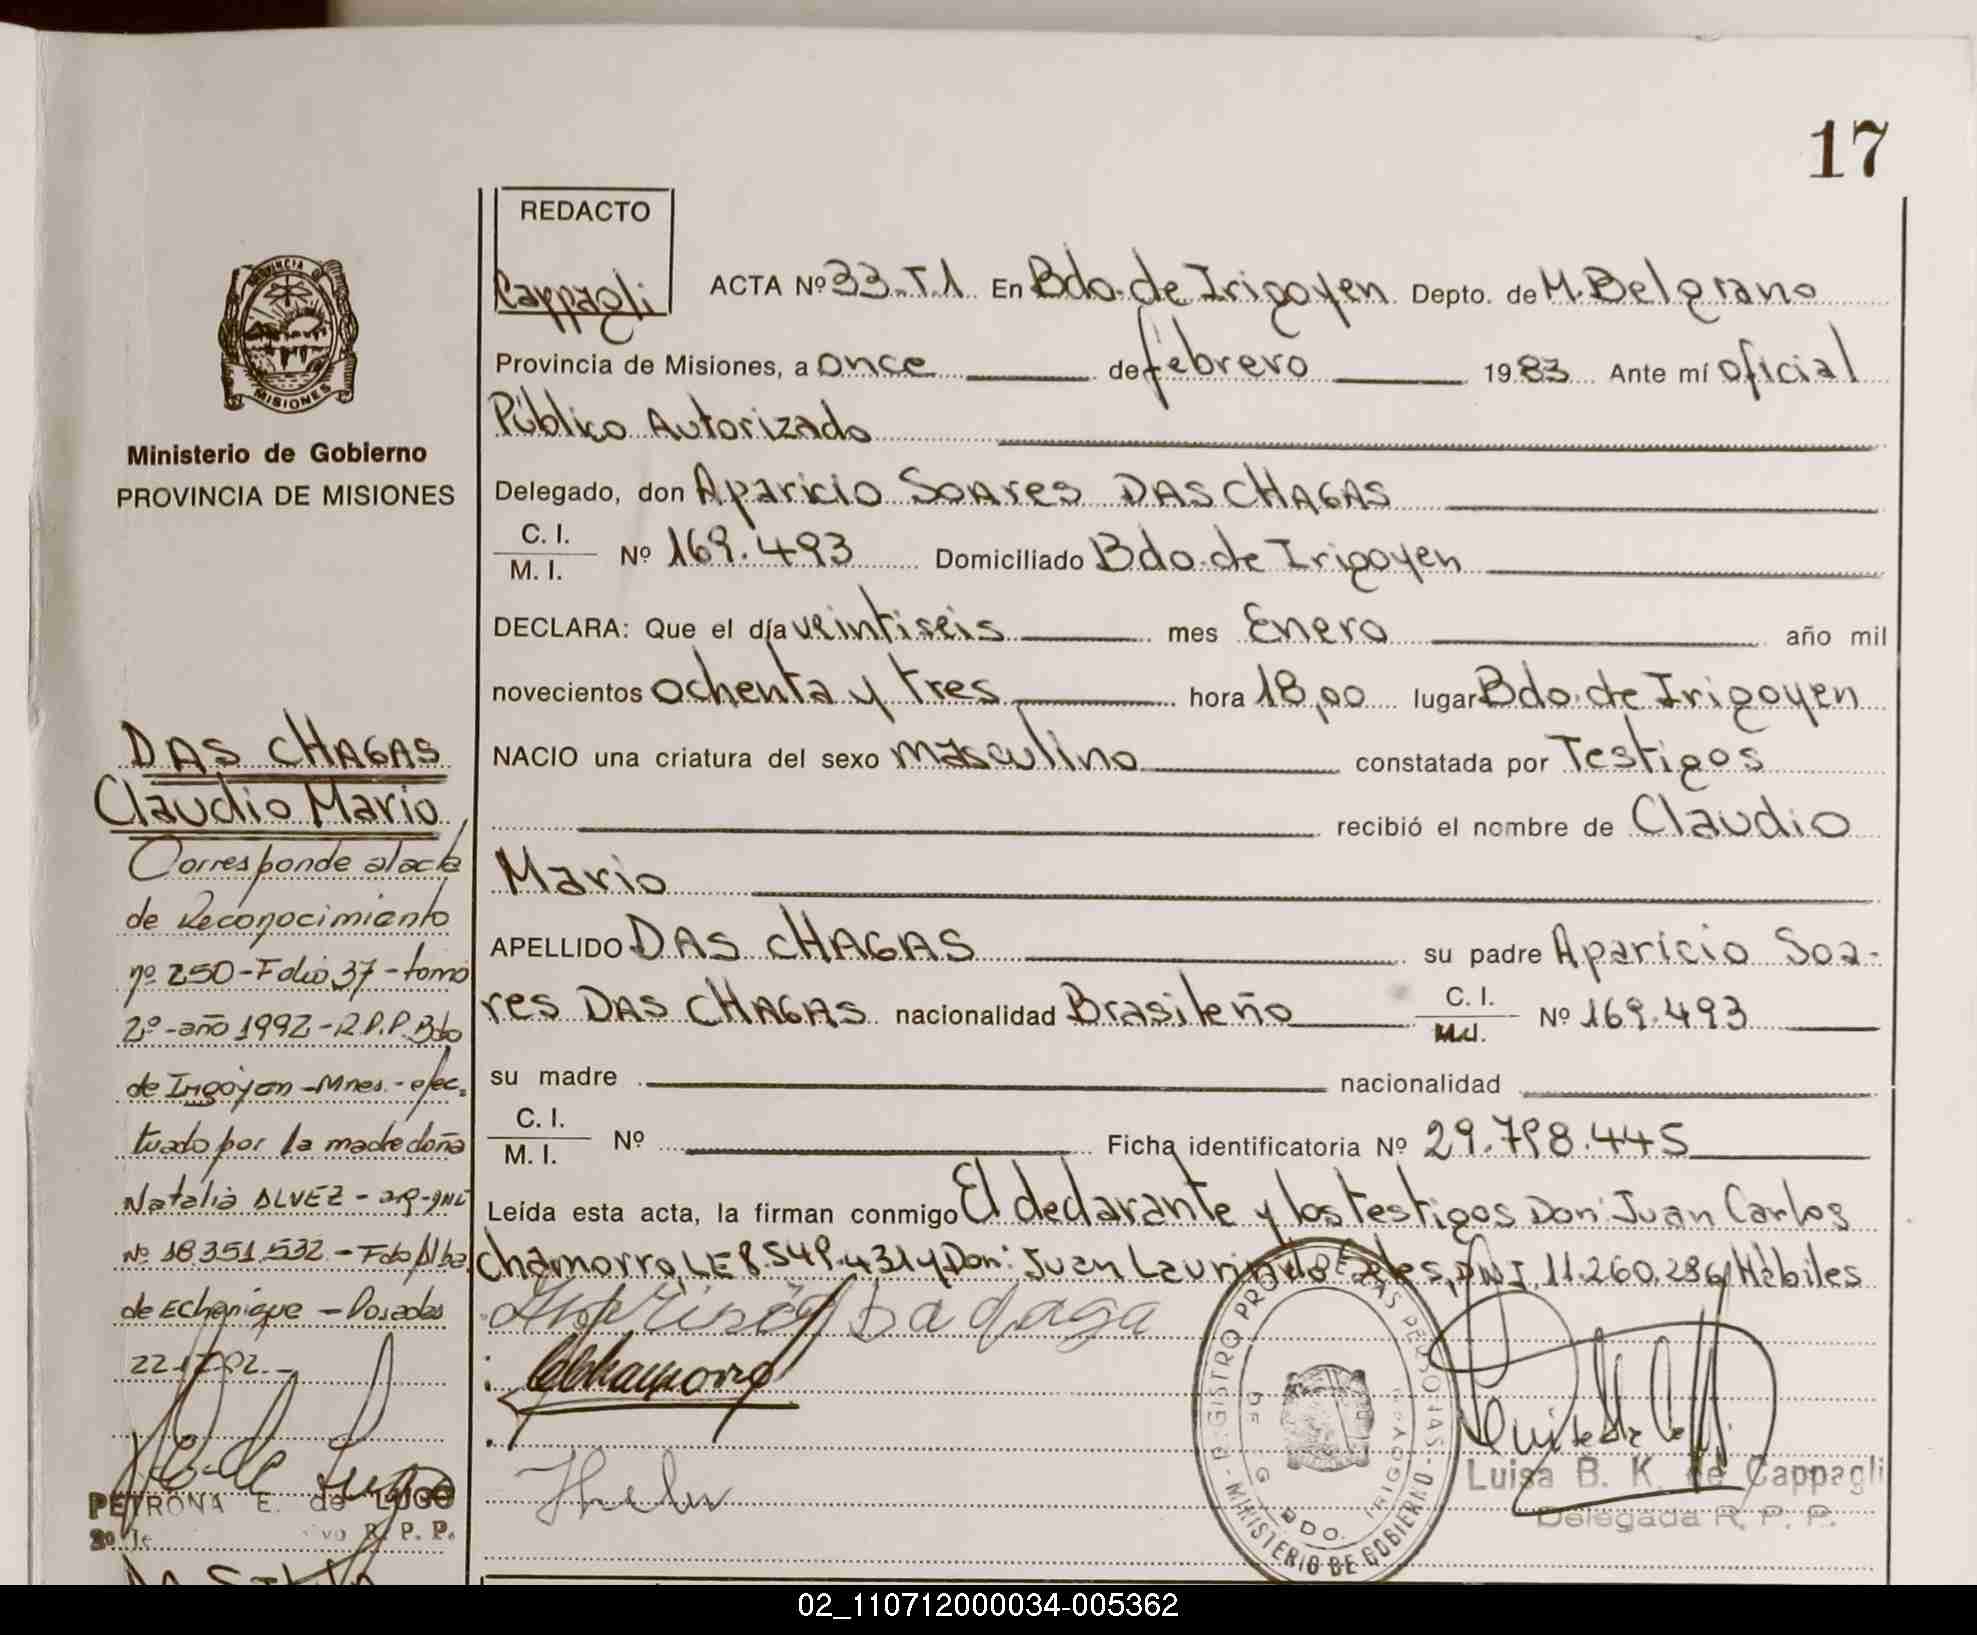 17
REDACTO
Cappagli
ACTA Nº 33-T.1 En Bdo. de Irigoyen Depto. de M. Belgrano
Provincia de Misiones, a once de febrero 1983 Ante mí oficial
Público Autorizado
Delegado, don Aparicio Soares DAS CHAGAS
C. I.
M. I. Nº 169.493 Domiciliado Bdo. de Irigoyen
DECLARA: Que el día veintiseis mes Enero año mil
novecientos ochenta y tres hora 18,00 lugar Bdo. de Irigoyen
NACIO una criatura del sexo masculino constatada por Testigos
recibió el nombre de Claudio
Mario
APELLIDO DAS CHAGAS su padre Aparicio Soa-
res DAS CHAGAS nacionalidad Brasileño C. I. M.I. Nº 169.493
su madre nacionalidad
C. I.
M. I. Nº Ficha identificatoria Nº 29.798.445
Leída esta acta, la firman conmigo El declarante y los testigos Don: Juan Carlos
Chamorro, LE 8.549.431 y Don: Juan Laurindo DNI. 11.260.286 Hábiles
PROVINCIA
MISIONES
Ministerio de Gobierno
PROVINCIA DE MISIONES
DAS CHAGAS
Claudio Mario
Corresponde al acta
de Reconocimiento
nº 250-Folio 37-tomo
2º-año 1992-R.P.P. Bdo
de Irigoyen-Mnes.-efec.
tuado por la madre doña
Natalia ALVEZ - arg-DNI
Nº 18.351.532 - Fdo Alba
de Echenique - Posadas
PETRONA E. de LUGO
R. P. P.
REGISTRO PROV. DE LAS PERSONAS
MINISTERIO DE GOBIERNO
BDO. IRIGOYEN
Luisa B. K. de Cappagli
Delegada R. P. P.
02_110712000034-005362